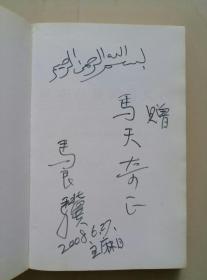 بسم الله الرحمن الرحيم
赠
馬天奇正
馬良骥
2008.6.27.
主麻日